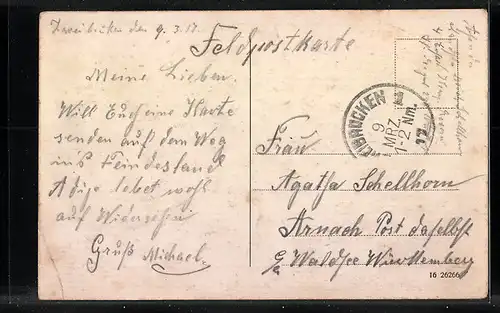 Zweibrücken den 9.3.17.
Feldpostkarte
Meine Lieben.
Will Euch eine Karte
senden auf dem Weg
ins Feindesland
Adije lebet wohl
auf Wiedersehen
Gruß Michael.
ZWEIBRÜCKEN 1
9
MRZ.
1-2 Nm.
17
Frau
Agatha Schellhorn
Arnach Post daselbst
Waldsee Württemberg
16 26266